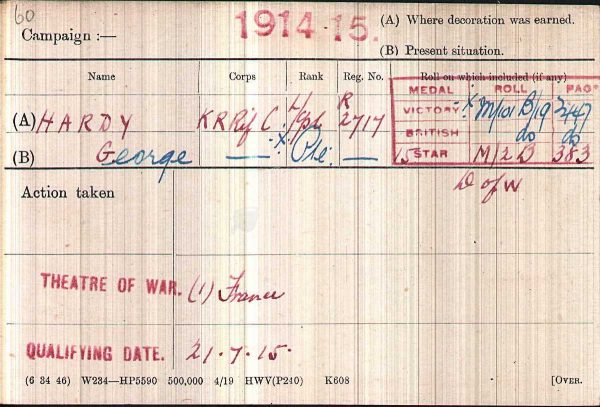 60
Campaign :— 1914-15. (A) Where decoration was earned.
(B) Present situation.
Name Corps Rank Reg. No. Roll on which included (if any)
MEDAL ROLL PAGE
(A) HARDY K R Rif C. L/Cpl R 2717 VICTORY x M/101 B19 3447
BRITISH do do
(B) George — x Pte. — 15 STAR M/2 B 383
D of W
Action taken
THEATRE OF WAR. (1) France
QUALIFYING DATE. 21.7.15.
(6 34 46) W234—HP5590 500,000 4/19 HWV(P240) K608 [OVER.